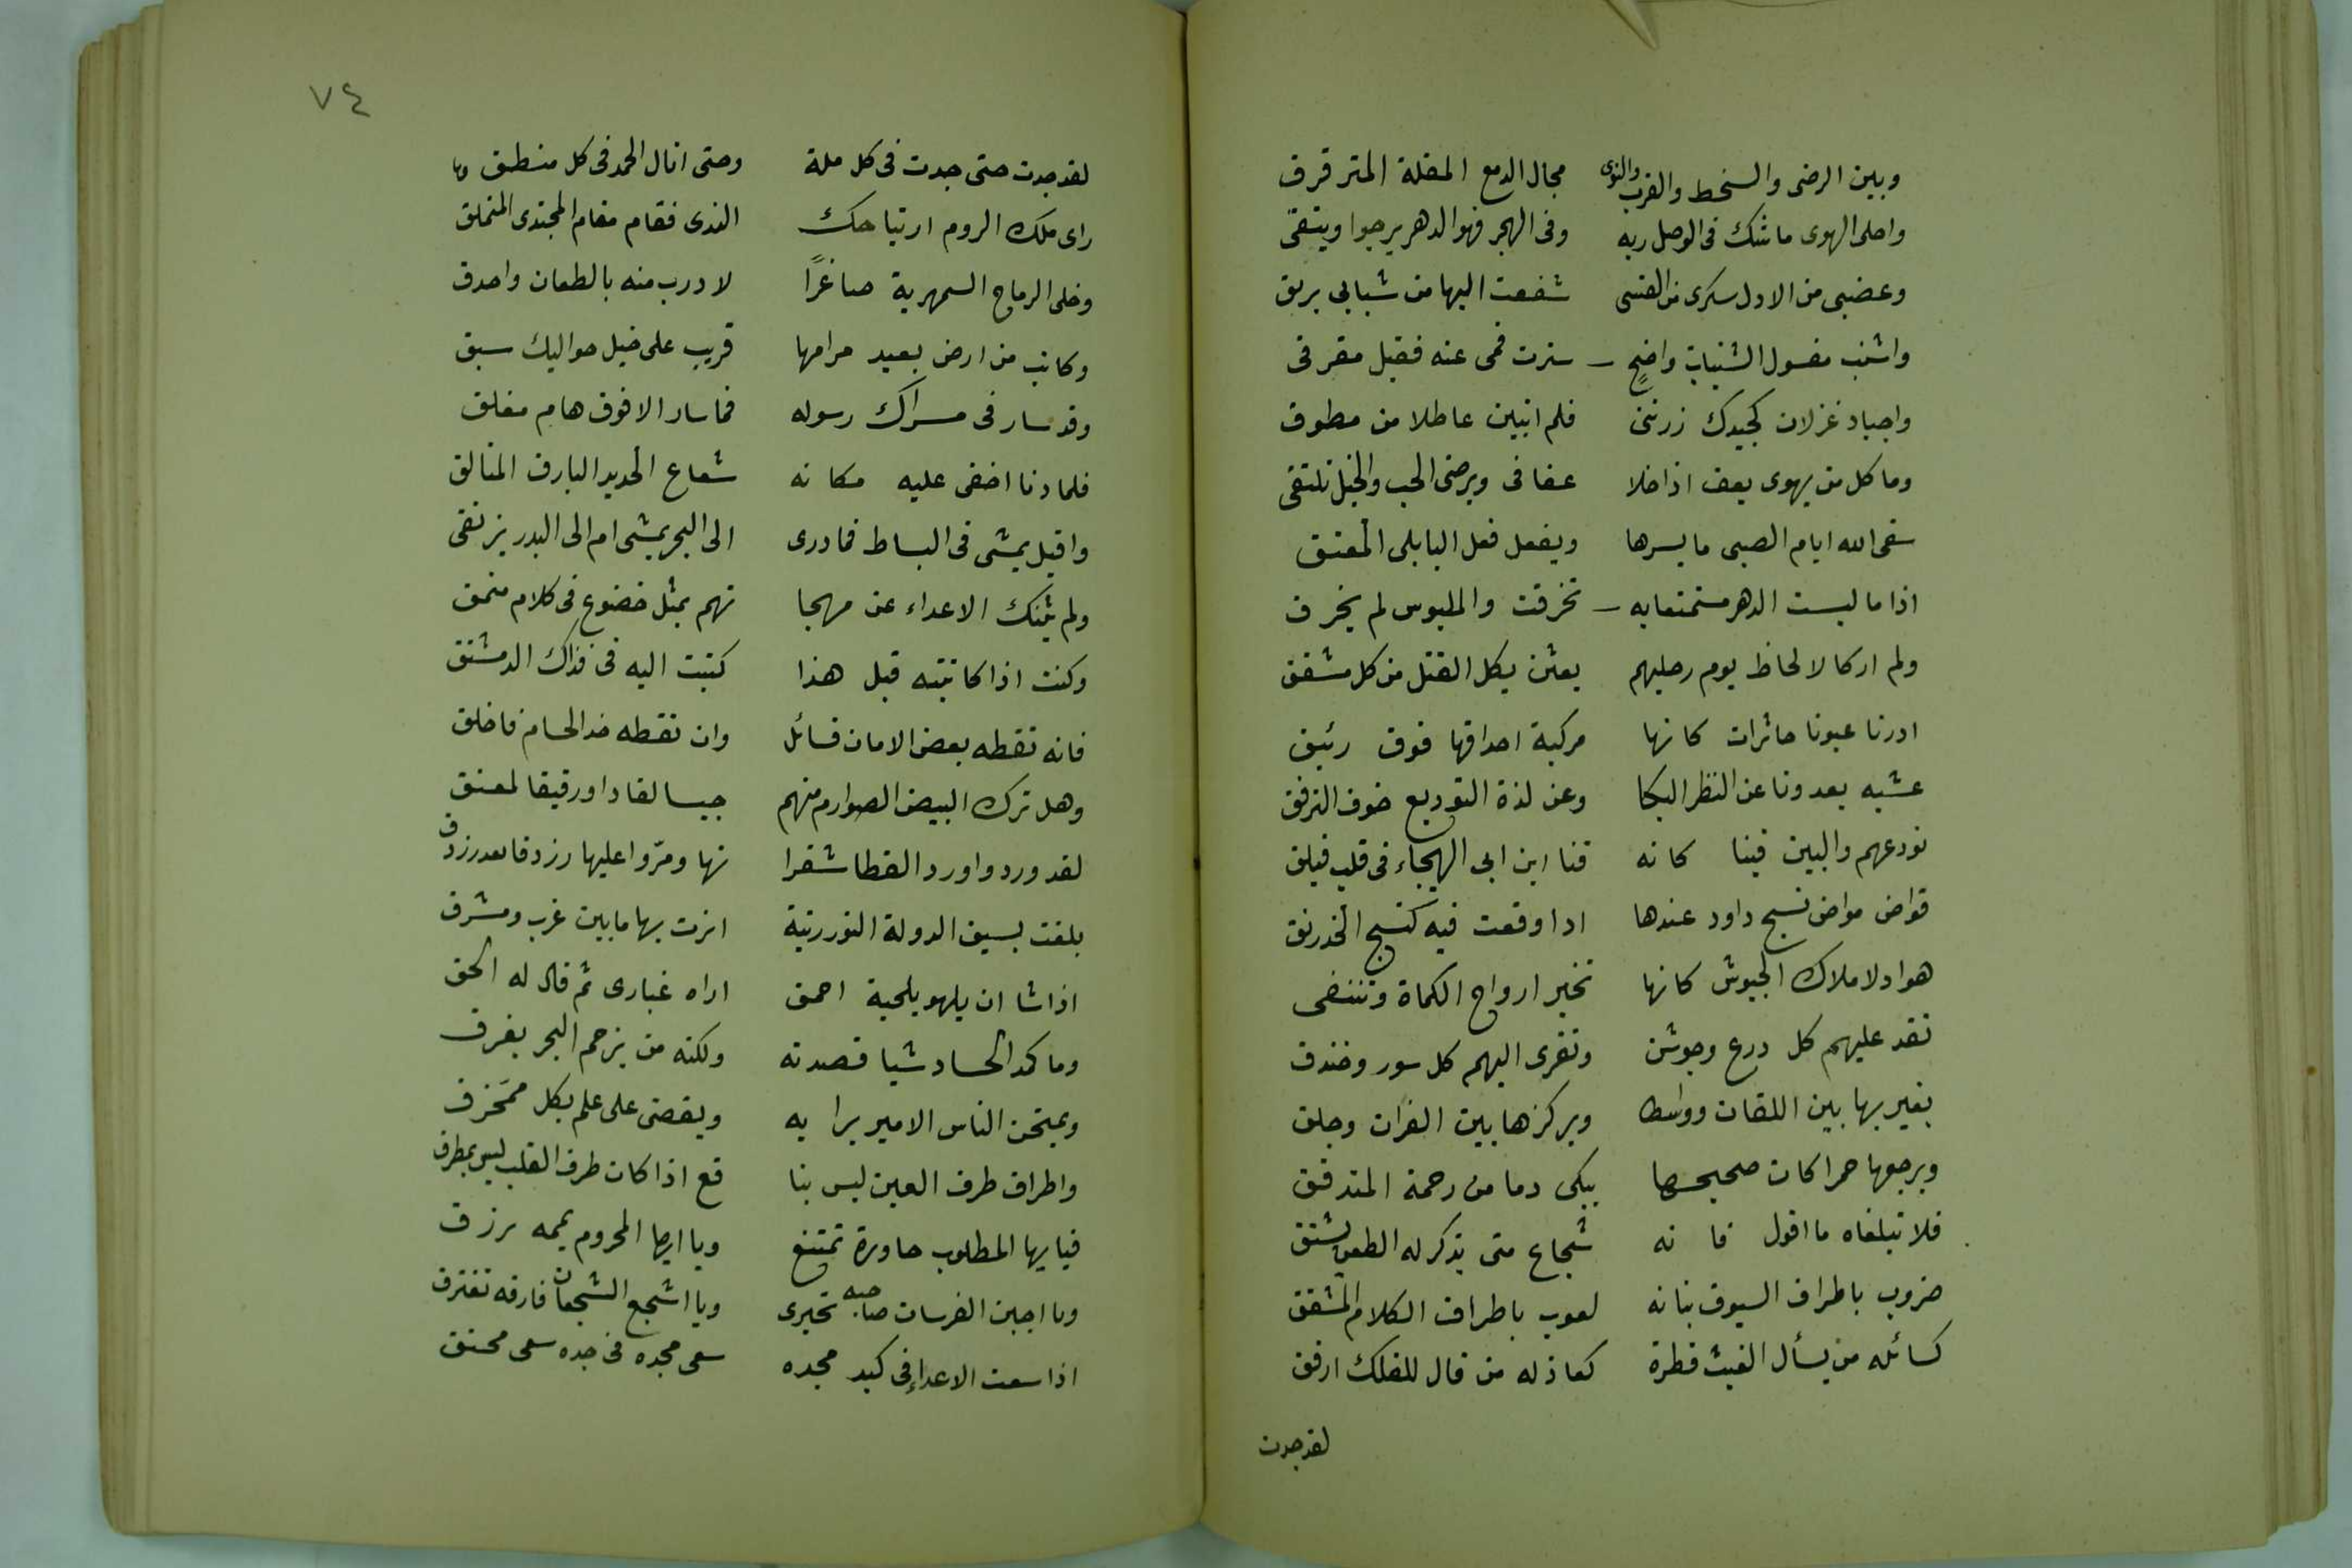 وبين الرضى والسخط والقرب والنوى مجال الدمع المقلة المترقرق
واحلى الهوى ما شك فى الوصل ربه وفى الهجر فهو الدهر يرجوا ويتقى
وغضبى من الادل سكرى من الفتى شفعت اليها من شبابى بريق
واشنب مفسول الشنيات واضحٍ سترت فمى عنه فقبل مفرقى
واجياد غزلان كجيدك زرننى فلم اتبين عاطلا من مطوق
وما كل من يهوى يعف اذا خلا عفافى ويرضى الحب والخيل تلتقى
سقى الله ايام الصبى ما يسرها ويفعل فعل البابلى المعتق
اذا ما لبست الدهر مستمتعا به تخرقت والملبوس لم يخرق
ولم ار كالالحاظ يوم رحليهم بعثن بكل القتل من كل مشفق
ادرنا عيونا حائرات كانها مركبة احداقها فوق رئبق
عشيه يعدونا عن النظر البكا وعن لذة التوديع خوف التفرق
نودعهم والبين فينا كانه قنا ابن ابى الهيجاء فى قلب فيلق
قواض مواض نسج داود عندها اذا وقعت فيه كنسج الخدرنق
هواد لاملاك الجيوش كانها تخير ارواح الكماة وتنتقى
تقد عليهم كل درع وجوشن وتفرى اليهم كل سور وخندق
يغير بها بين اللقان وواسط ويركزها بين الفرات وجلق
ويرجعها حمرا كان صحيحها يبكى دما من رحمة المتدقق
فلا تبلغاه ما اقول فانه شجاع متى يذكر له الطعن يشتق
ضروب باطراف السيوف بنانه لعوب باطراف الكلام المشقق
كسائله من يسأل الغيث قطرة كعاذله من قال للفلك ارفق
لقد جدت
٧٤
لقد جدت حتى جدت فى كل ملة وحتى اتال الحمد فى كل منطق
راى ملك الروم ارتياحك الندى فقام مقام المجتدى المتملق
وخلى الرماح السمهرية صاغرًا لادرب منه بالطعان واحدق
وكاتب من ارض بعيد مرامها قريب على خيل حواليك سبق
وقد سار فى مسراك رسوله فما سار الا فوق هام مفلق
فلما دنا اخفى عليه مكانه شعاع الحديد البارق المتالق
واقبل يمشى فى البساط فما درى الى البحر يمشى ام الى البدر يرتقى
ولم يثنك الاعداء عن مهجا تهم بمثل خضوع فى كلام منمق
وكنت اذا كاتبته قبل هذا كتبت اليه فى قذاك الدمشتق
فانه تقطه بعض الامان فسائل وان تقطه حد الحسام فاخلق
وهل ترك البيض الصوارم منهم حبيسا لفاد او رقيقا لمعتق
لقد وردوا ورد القطا شفرا تها ومرّوا عليها رزدقا بعد رزدق
بلغت بسيف الدولة النور رتبة انرت بها ما بين غرب ومشرق
اذا شا ان يلهو بلحية احمق اراه غبارى ثم قال له الحق
وما كمد الحساد شيا قصدته ولكنه من يزحم البحر يغرق
ويمتحن الناس الامير برايه ويقضى على علم بكل ممخرق
واطراق طرف العين ليس بنا فع اذا كان طرف القلب ليس بمطرق
فيايها المطلوب جاوره تمتنع ويا ايها المحروم يممه ترزق
ويا اجبن الفرسان صاحبه تجترى ويا اشجع الشجعان فارقه تفترق
اذا سعت الاعداء فى كيد مجده سعى مجده فى جده سعى محنق